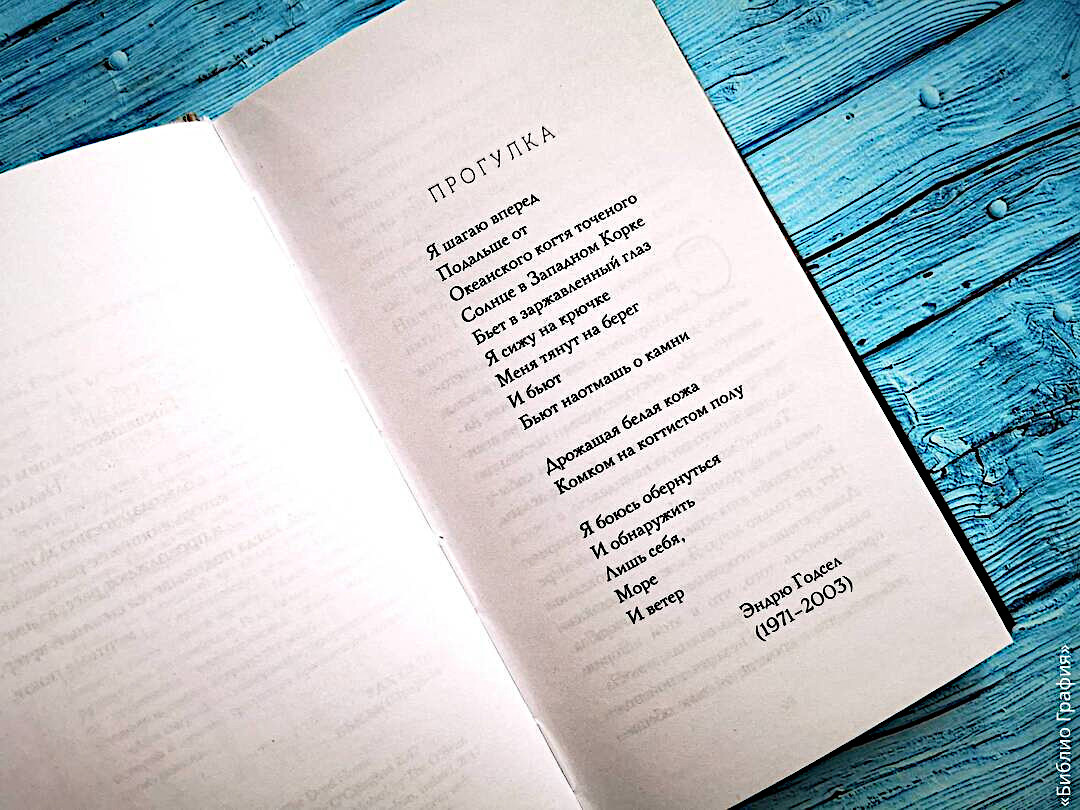 ПРОГУЛКА
Я шагаю вперед
Подальше от
Океанского когтя точеного
Солнце в Западном Корке
Бьет в заржавленный глаз
Я сижу на крючке
Меня тянут на берег
И бьют
Бьют наотмашь о камни
Дрожащая белая кожа
Комком на когтистом полу
Я боюсь обернуться
И обнаружить
Лишь себя,
Море
И ветер
Эндрю Годсел
(1971–2003)
«Библио Графия»